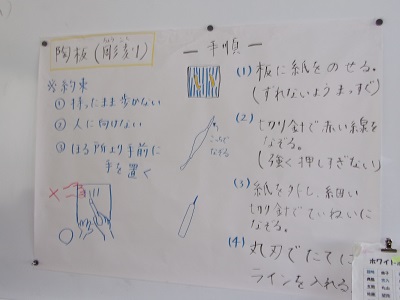 陶板(彫刻)
※約束
① 持ったまま歩かない
② 人に向けない
③ ほる所より手前に
手を置く
×
○
― 手順 ―
(1) 板に紙をのせる。
(ずれないようまっすぐ)
(2) 切り針で赤い線を
なぞる。
(強く押しすぎない)
(3) 紙を外し、細い
切り針でていねいに
なぞる。
(4) 丸刃でたてに
ラインを入れる
ホワイト